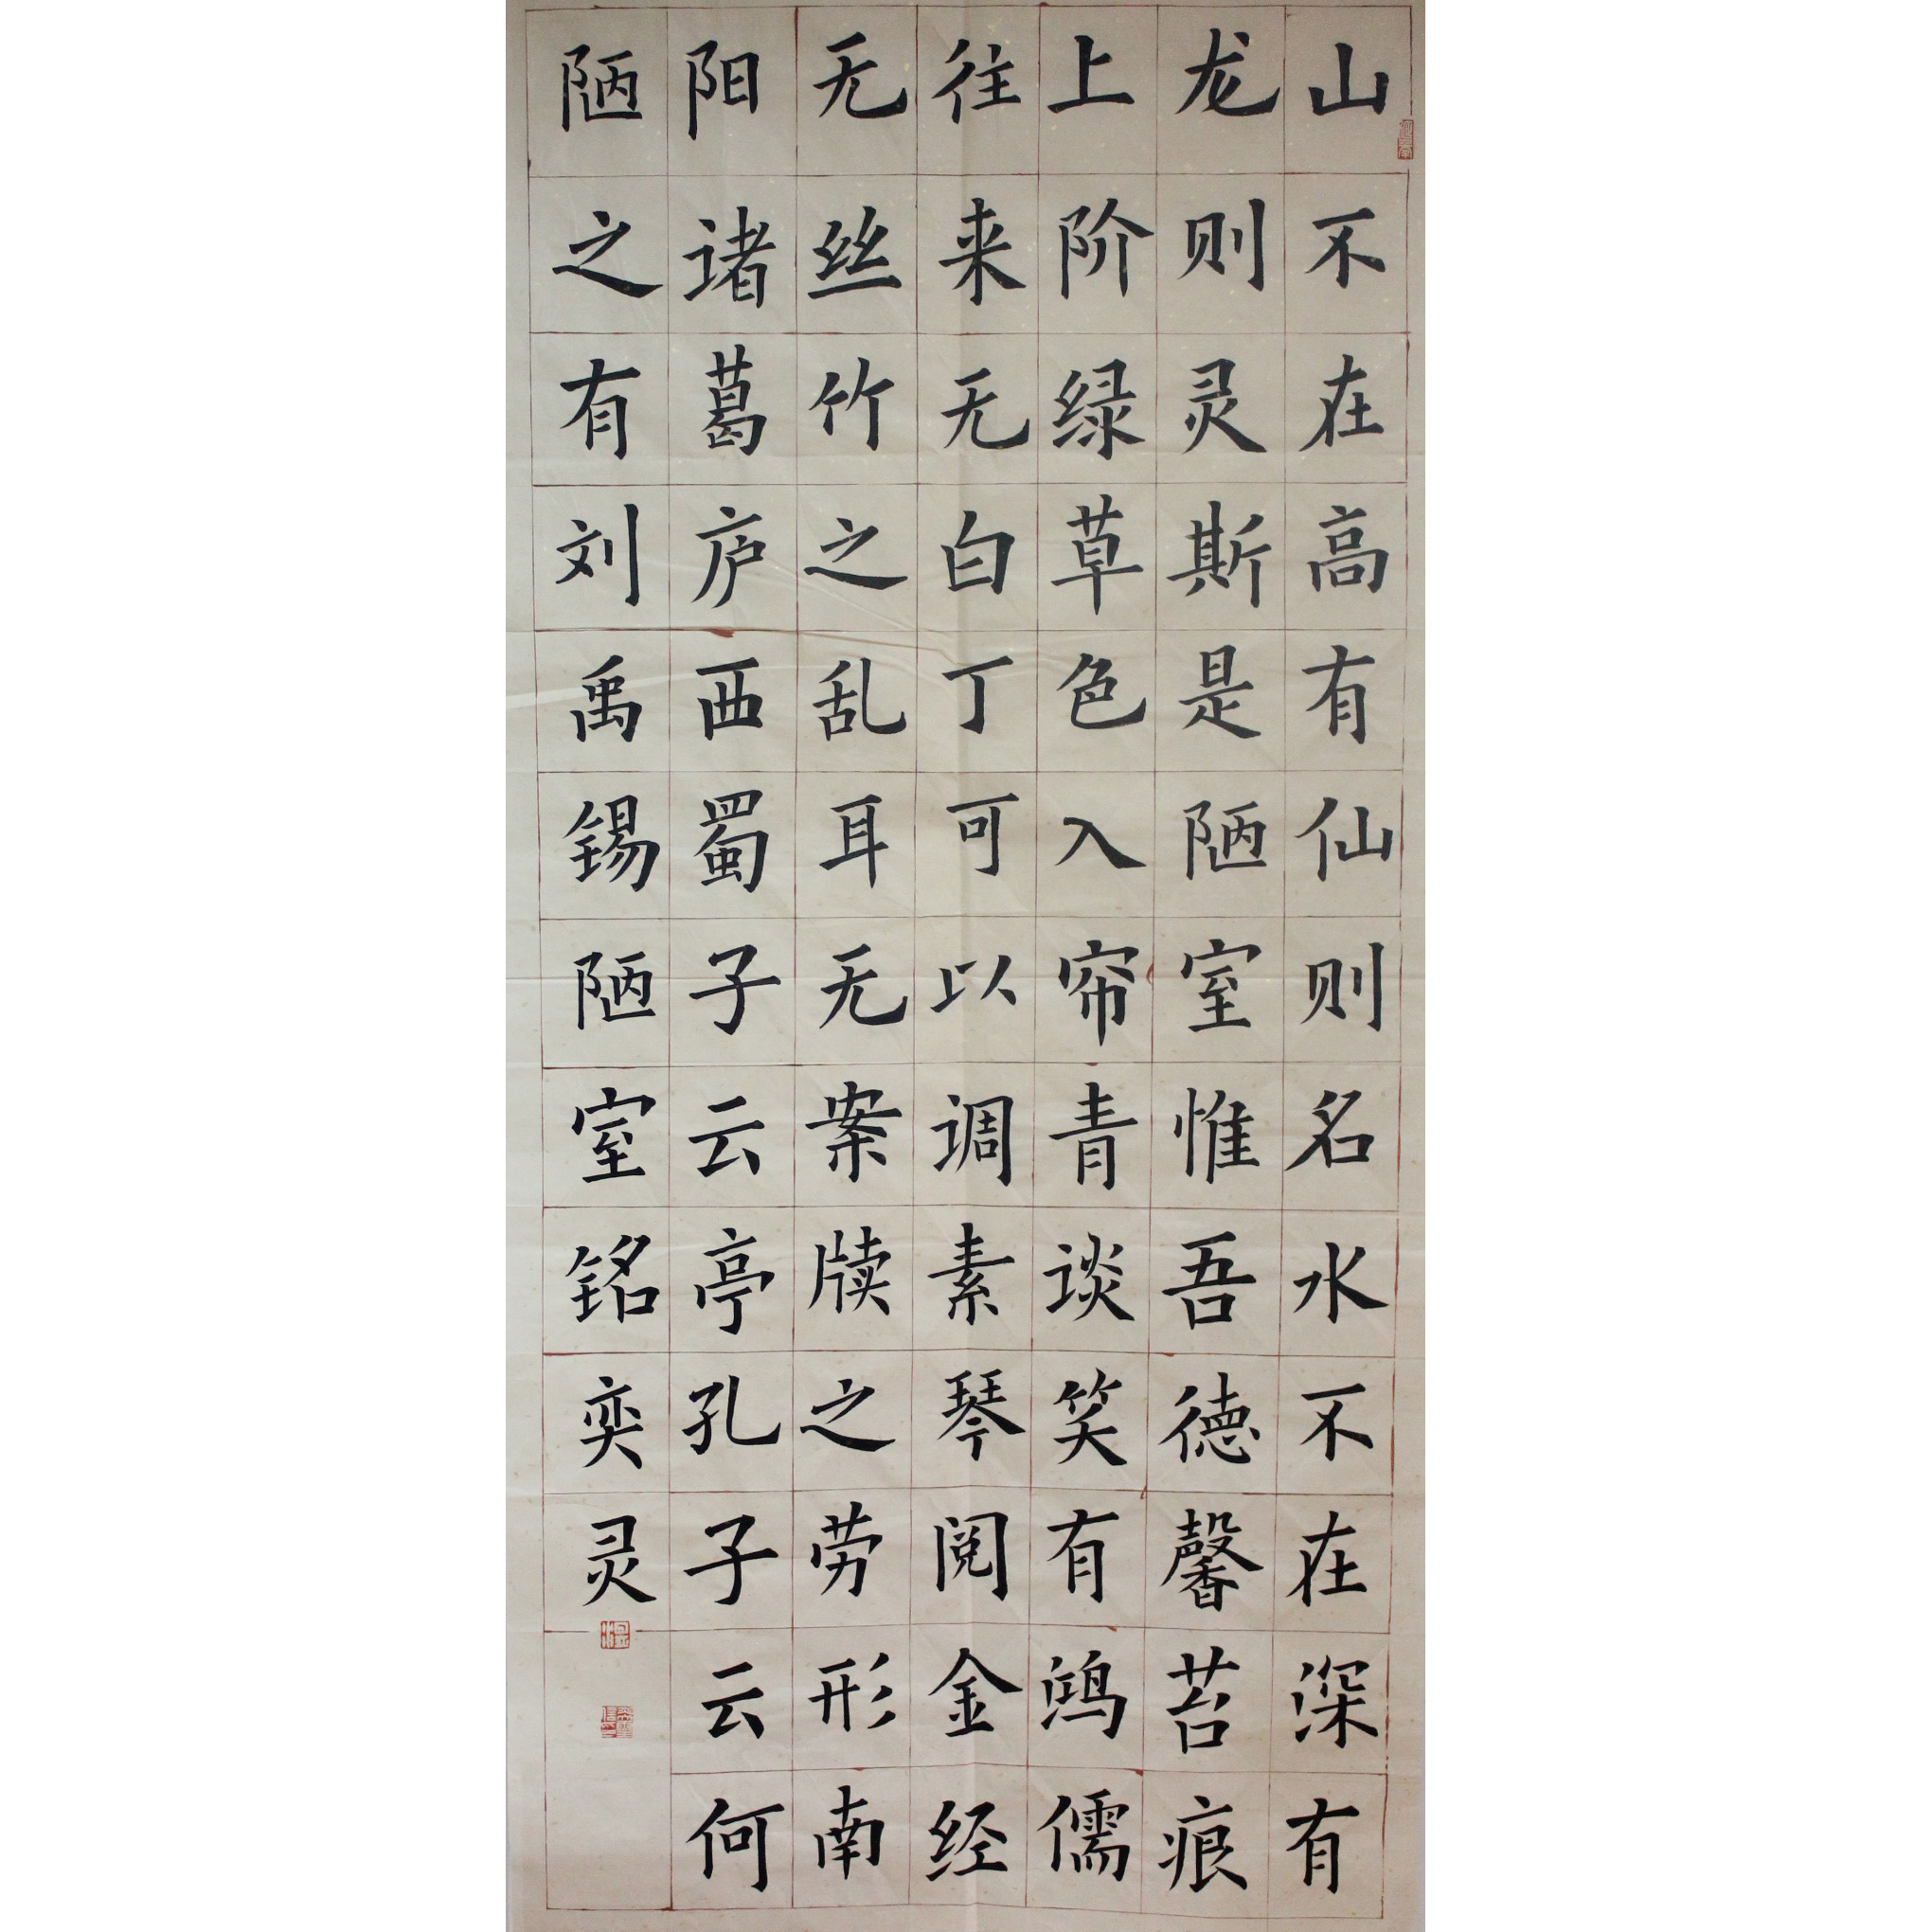 山不在高有仙则名水不在深有
龙则灵斯是陋室惟吾德馨苔痕
上阶绿草色入帘青谈笑有鸿儒
往来无白丁可以调素琴阅金经
无丝竹之乱耳无案牍之劳形南
阳诸葛庐西蜀子云亭孔子云何
陋之有刘禹锡陋室铭奕灵